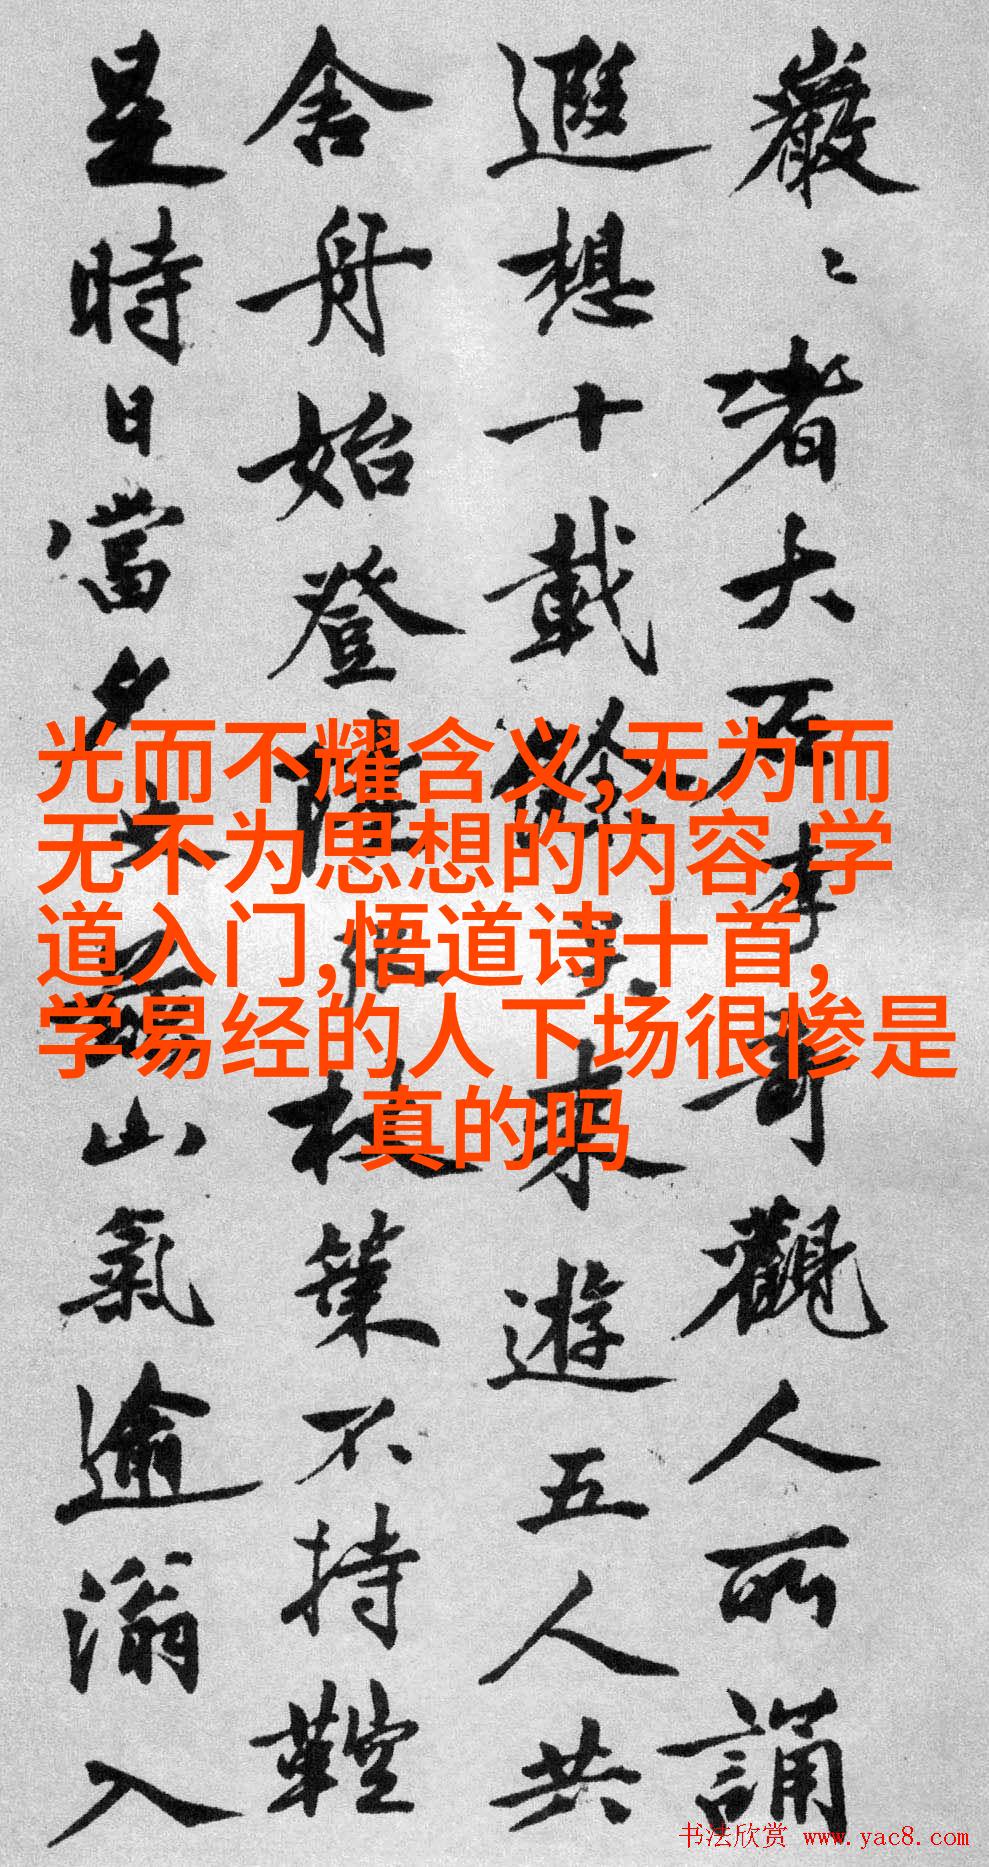 巖〻者大不幸哥觀人所誦
遐想十載餘來遊五人共
舍舟始登陸杖策不持鞚
是時日當夕山氣逾滃入
光而不耀含义,无为而
无不为思想的内容,学
道入门,悟道诗十首,
学易经的人下场很惨是
真的吗
书法欣赏 www.yac8.com